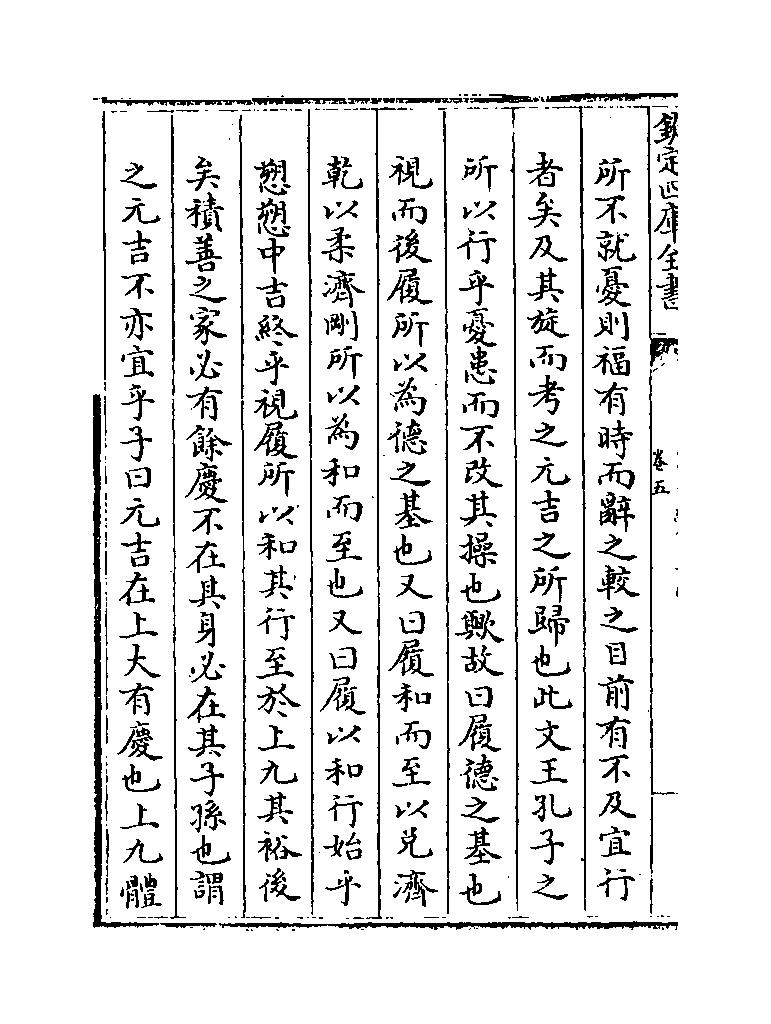 欽定四庫全書
卷五
所不就憂則福有時而辭之較之目前有不及宜行
者矣及其旋而考之元吉之所歸也此文王孔子之
所以行乎憂患而不改其操也歟故曰履德之基也
視而後履所以為德之基也又曰履和而至以兌濟
乾以柔濟剛所以為和而至也又曰履以和行始乎
愬愬中吉終乎視履所以和其行至於上九其裕後
矣積善之家必有餘慶不在其身必在其子孫也謂
之元吉不亦宜乎子曰元吉在上大有慶也上九體